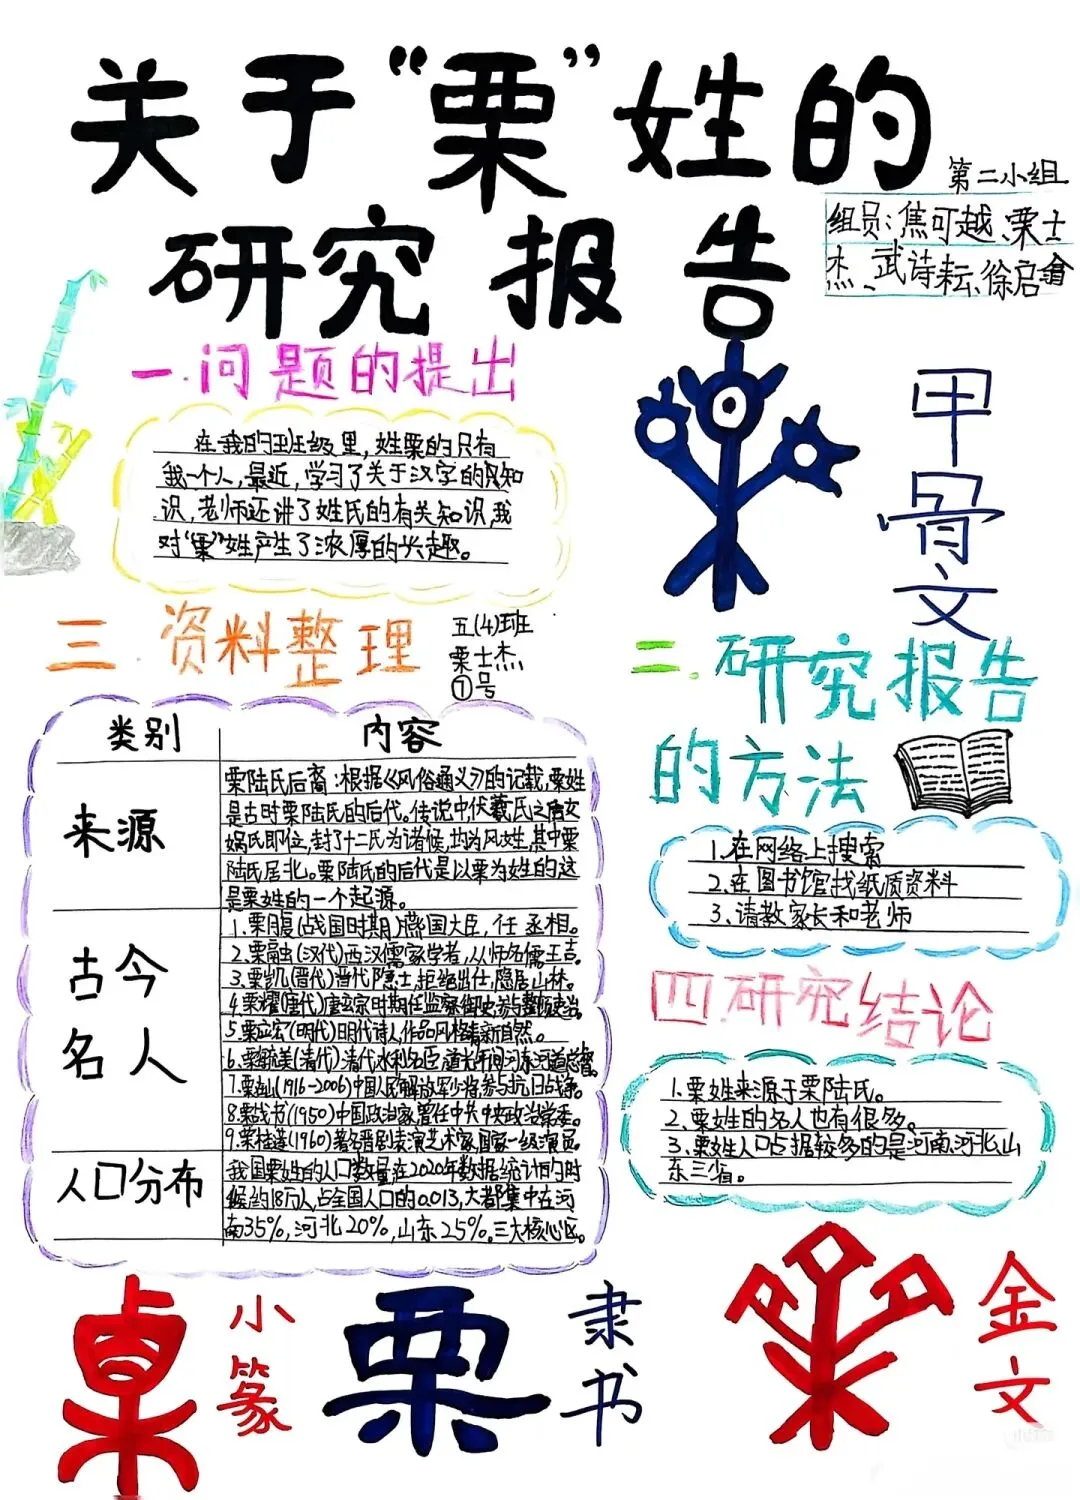 关于“栗”姓的
研究报告
第二小组
组员:焦可越、栗士
杰、武诗耘、徐启
一.问题的提出
在我的班级里,姓栗的只有
我一个人,最近,学习了关于汉字的知
识,老师还讲了姓氏的有关知识,我
对“栗”姓产生了浓厚的兴趣。
甲骨文
三.资料整理
五(4)班
栗士杰
①号
二.研究报告
的方法
1.在网络上搜索
2.在图书馆找纸质资料
3.请教家长和老师
类别 内容
来源
栗陆氏后裔:根据《风俗通义》的记载,栗姓
是古时栗陆氏的后代。传说中伏羲氏之后女
娲氏即位,封了十二氏为诸候,均为风姓,其中栗
陆氏居北。栗陆氏的后代是以栗为姓的这
是栗姓的一个起源。
古今
名人
1.栗腹(战国时期)燕国大臣,任丞相。
2.栗融(汉代)西汉儒家学者,从师名儒王吉。
3.栗凯(晋代)晋代隐士,拒绝出仕,隐居山林。
4.栗耀(唐代)唐玄宗时期任监察御史,参与整顿吏治。
5.栗应宏(明代)明代诗人,作品风格清新自然。
6.栗毓美(清代)清代水利名臣,道光年间河东河道总督。
7.栗(1916-2006)中国人民解放军少将,参与抗日战争。
8.栗战书(1950)中国政治家,曾任中共中央政治常委。
9.栗桂莲(1960)著名晋剧表演艺术家,国家一级演员。
人口分布
我国栗姓的人口数量,在2020年数据统计的时
候约18万人,占全国人口的0.013,大都集中在河
南35%,河北20%,山东25%。三大核心区。
四.研究结论
1.栗姓来源于栗陆氏。
2.栗姓的名人也有很多。
3.栗姓人口占据较多的是河南、河北、山
东三省。
小篆
栗
隶书
金文